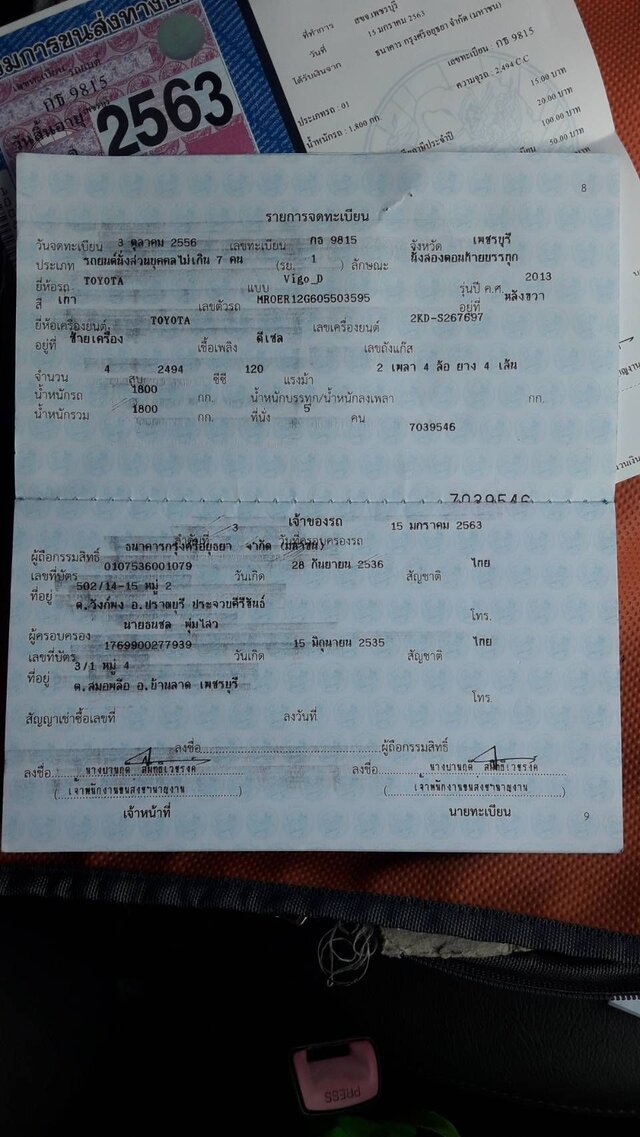 มการขนส่งทางบ
เลขทะเบียน รถยนต์
กธ 9815
วันสิ้นอายุ
2563
ที่ทำการ สขจ.เพชรบุรี
วันที่ 15 มกราคม 2563
ได้รับเงินจาก ธนาคาร กรุงศรีอยุธยา จำกัด (มหาชน)
เลขทะเบียน : กธ 9815
ประเภทรถ : 01 ความจุรถ : 2,494 C C
น้ำหนักรถ : 1,800 กก. 15.00 บาท
20.00 บาท
100.00 บาท
50.00 บาท
8
รายการจดทะเบียน
วันจดทะเบียน 3 ตุลาคม 2556 เลขทะเบียน กธ 9815 จังหวัด เพชรบุรี
ประเภท รถยนต์นั่งส่วนบุคคลไม่เกิน 7 คน (รย. 1 ) ลักษณะ นั่งสองตอนท้ายบรรทุก
ยี่ห้อรถ TOYOTA แบบ Vigo_D รุ่นปี ค.ศ. 2013
สี เทา เลขตัวรถ MR0ER12G605503595 อยู่ที่ หลังขวา
ยี่ห้อเครื่องยนต์ TOYOTA เลขเครื่องยนต์ 2KD-S267697
อยู่ที่ ซ้ายเครื่อง เชื้อเพลิง ดีเซล เลขถังแก๊ส
จำนวน 4 สูบ 2494 ซีซี 120 แรงม้า 2 เพลา 4 ล้อ ยาง 4 เส้น
น้ำหนักรถ 1800 กก. น้ำหนักบรรทุก/น้ำหนักลงเพลา กก.
น้ำหนักรวม 1800 กก. ที่นั่ง 5 คน
7039546
7039546
เจ้าของรถ
ลำดับที่ 3 วันที่ครอบครองรถ 15 มกราคม 2563
ผู้ถือกรรมสิทธิ์ ธนาคารกรุงศรีอยุธยา จำกัด (มหาชน)
เลขที่บัตร 0107536001079 วันเกิด 28 กันยายน 2536 สัญชาติ ไทย
ที่อยู่ 502/14-15 หมู่ 2
ต.วังก์พง อ.ปราณบุรี ประจวบคีรีขันธ์ โทร.
ผู้ครอบครอง นายธนชล พุ่มไสว
เลขที่บัตร 1769900277939 วันเกิด 15 มิถุนายน 2535 สัญชาติ ไทย
ที่อยู่ 3/1 หมู่ 4
ต.สมอพลือ อ.บ้านลาด เพชรบุรี โทร.
สัญญาเช่าซื้อเลขที่ ลงวันที่
ลงชื่อ ผู้ถือกรรมสิทธิ์
ลงชื่อ ลงชื่อ
( เจ้าพนักงานขนส่งชำนาญงาน ) ( เจ้าพนักงานขนส่งชำนาญงาน )
เจ้าหน้าที่ นายทะเบียน
9
PRESS